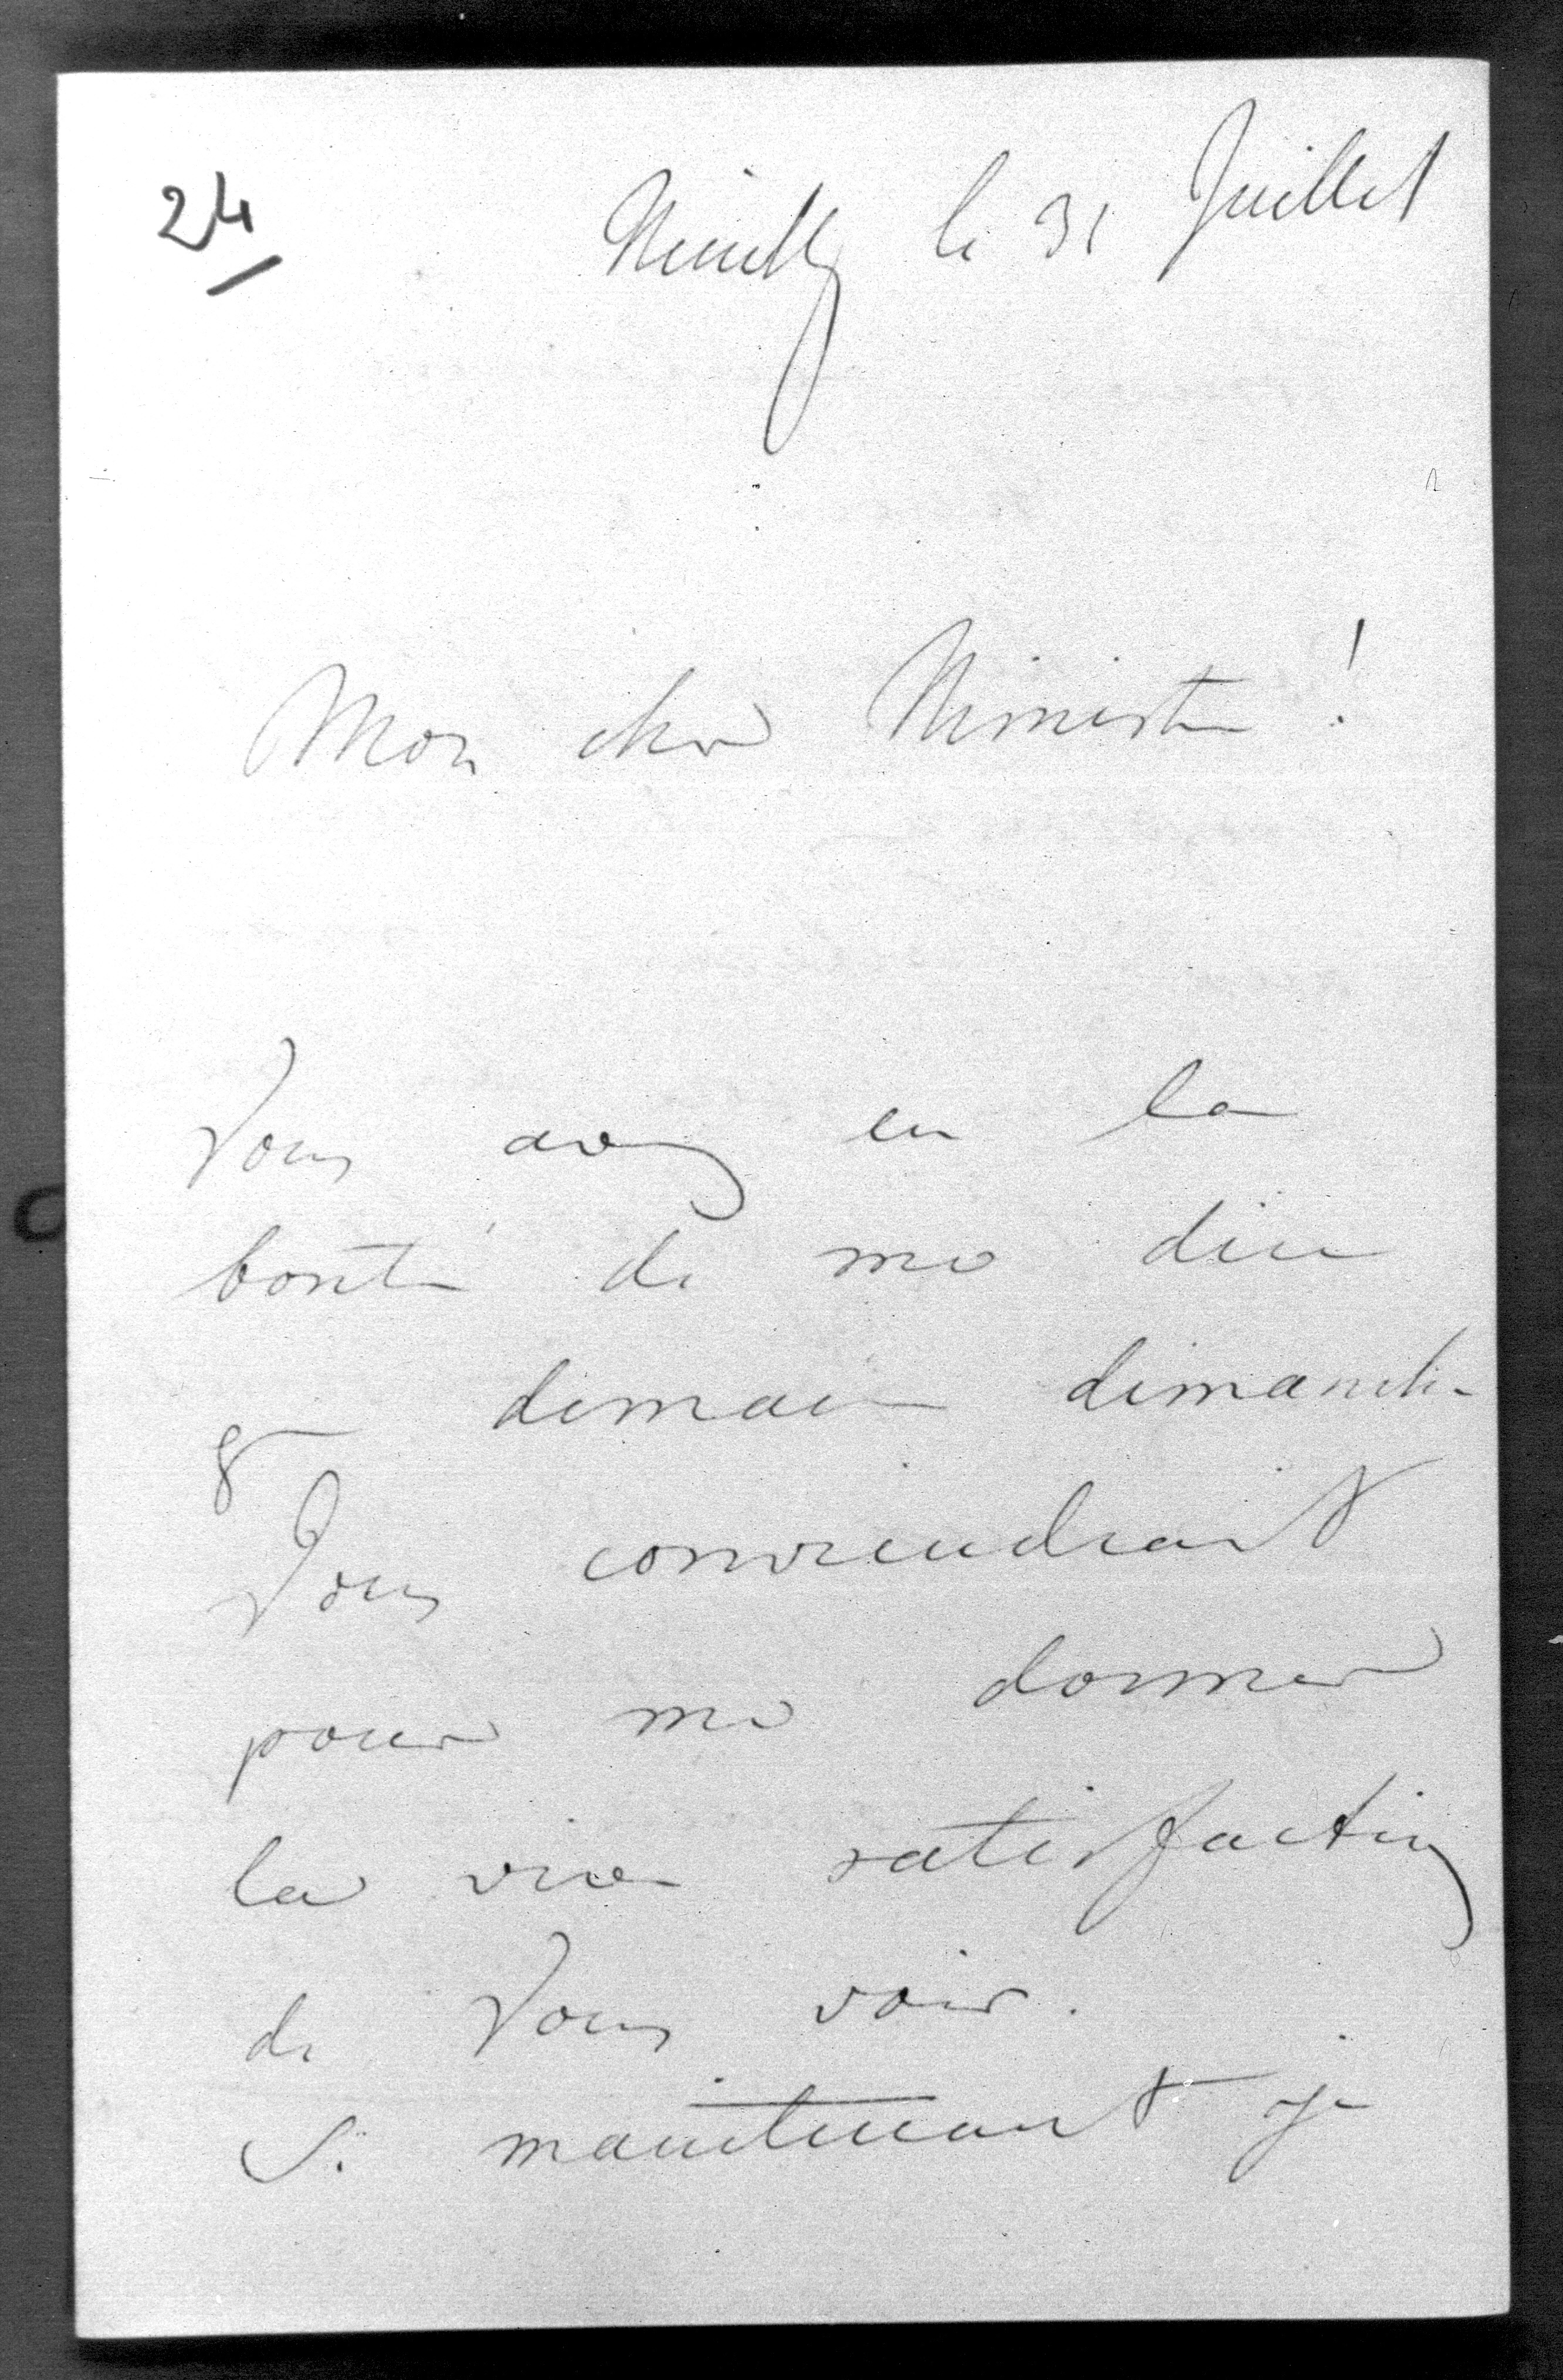 24
Neuilly le 31 Juillet
Mon cher Ministre !
Vous avez eu la
bonté de me dire
que demain dimanche
Vous conviendrait
pour me donner
la vive satisfaction
de Vous voir.
Si maintenant je